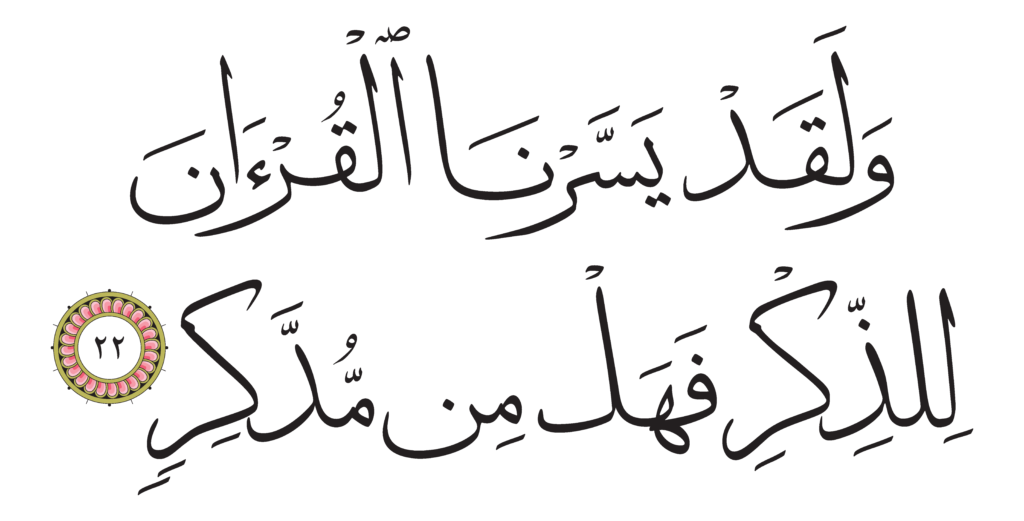 وَلَقَدْ يَسَّرْنَا ٱلْقُرْءَانَ
لِلذِّكْرِ فَهَلْ مِن مُّدَّكِرٍ ٢٢